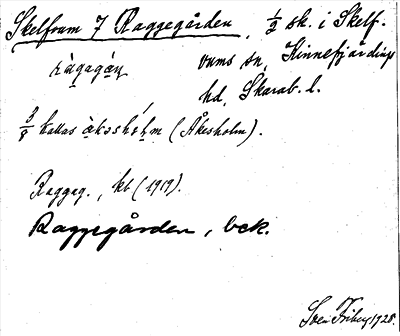 Skelfrum 7 Raggegården, 1/2 sk. i Skelf-
ràgagáṇ vums sn, Kinnefjärdings
hd, Skarab. l.
3/8 kallas àkəshólm (Åkesholm).
Raggag., kt (1919).
Raggegården, bek.
Sven Friberg 1928.